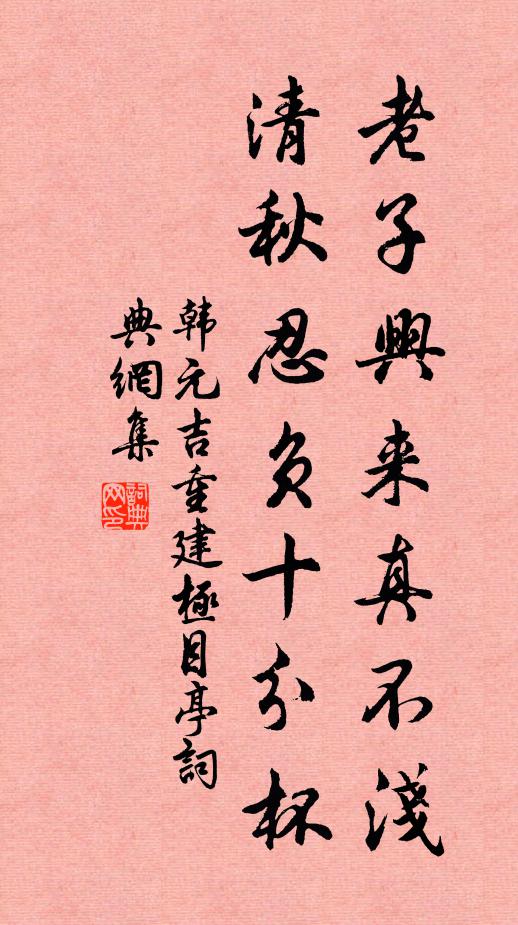 老子興来真不淺
清秋忍負十分杯
韩元吉重建極目亭詞
典網集
詞典网印